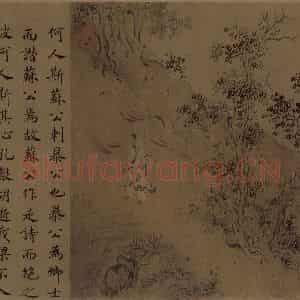 何人斯蘇公刺暴也暴公為卿士
而譖蘇公焉故蘇公作是詩而絕之
彼何人斯其心孔艱胡逝我梁不入
Shufawang.CN